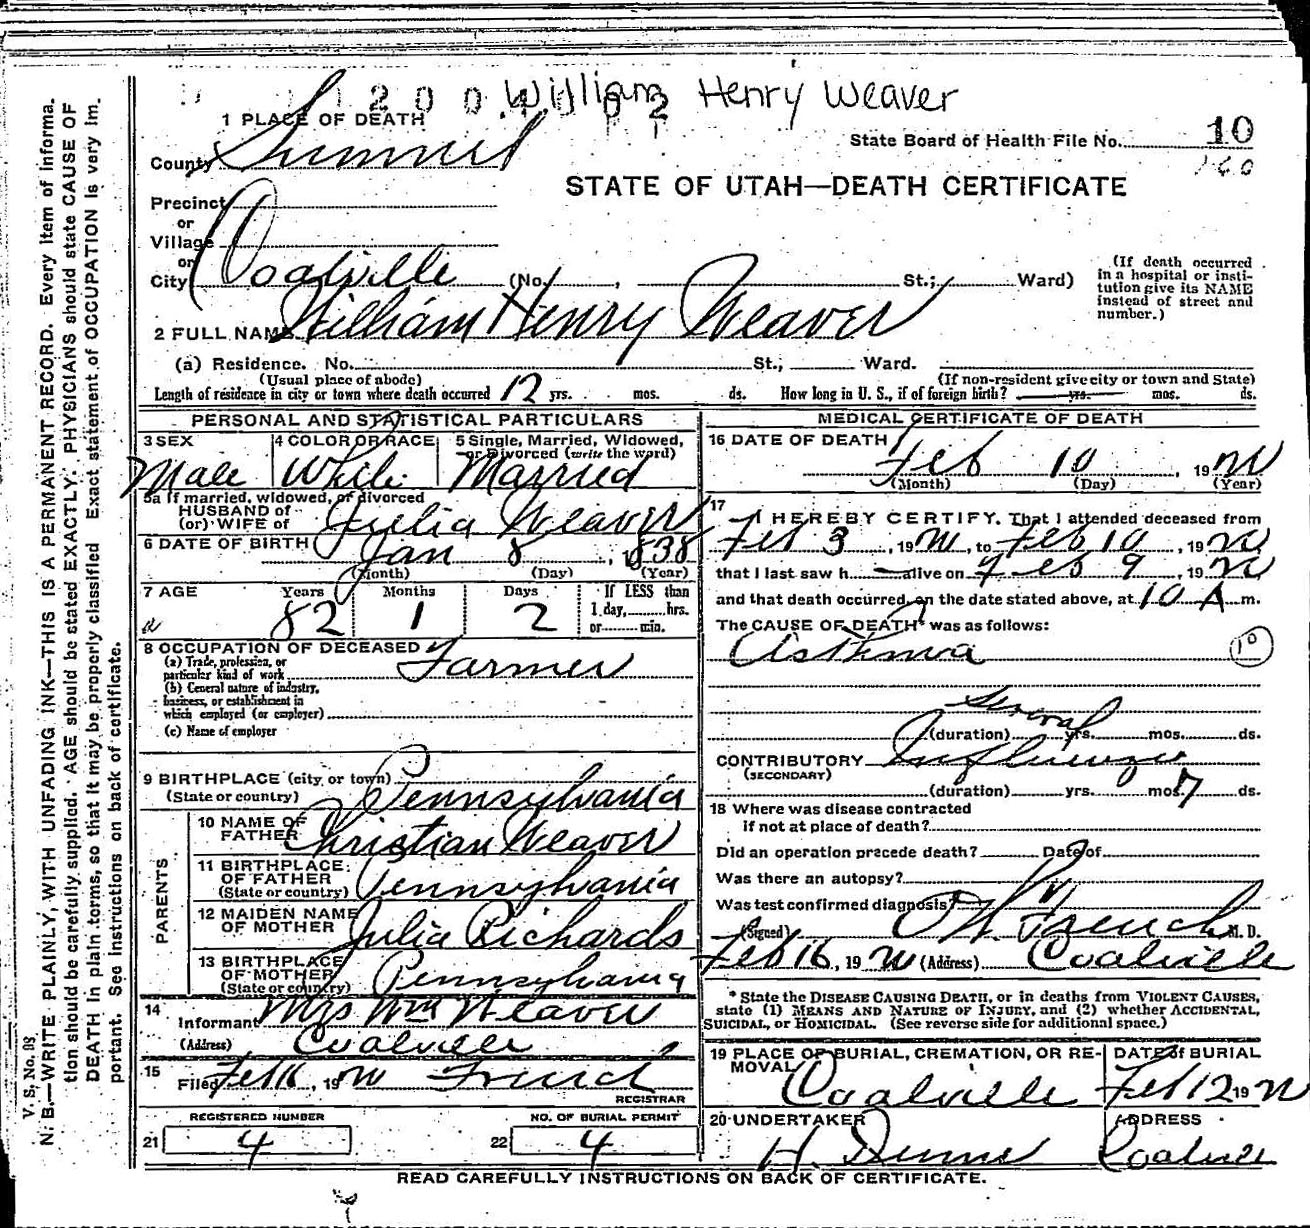 William Henry Weaver
1 PLACE OF DEATH
State Board of Health File No. 10
County Summit
160
STATE OF UTAH—DEATH CERTIFICATE
Precinct
or
Village
or
City Coalville (No. , St.; Ward)
(If death occurred in a hospital or institution give its NAME instead of street and number.)
2 FULL NAME William Henry Weaver
(a) Residence. No. St., Ward.
(Usual place of abode) (If non-resident give city or town and State)
Length of residence in city or town where death occurred 12 yrs. mos. ds. How long in U. S., if of foreign birth? yrs. mos. ds.
PERSONAL AND STATISTICAL PARTICULARS
3 SEX 4 COLOR OR RACE 5 Single, Married, Widowed, or Divorced (write the word)
Male White Married
5a If married, widowed, or divorced
HUSBAND of
(or) WIFE of Julia Weaver
6 DATE OF BIRTH Jan 8, 1838
(Month) (Day) (Year)
7 AGE Years Months Days If LESS than
82 1 2 1 day, hrs.
or min.
8 OCCUPATION OF DECEASED
(a) Trade, profession, or
particular kind of work Farmer
(b) General nature of industry,
business, or establishment in
which employed (or employer)
(c) Name of employer
9 BIRTHPLACE (city or town)
(State or country) Pennsylvania
PARENTS
10 NAME OF
FATHER Christian Weaver
11 BIRTHPLACE
OF FATHER
(State or country) Pennsylvania
12 MAIDEN NAME
OF MOTHER Julia Richards
13 BIRTHPLACE
OF MOTHER
(State or country) Pennsylvania
14
Informant Mrs Wm Weaver
(Address) Coalville
15
Filed Feb 16, 19 20 French
REGISTRAR
REGISTERED NUMBER NO. OF BURIAL PERMIT
21 4 22 4
MEDICAL CERTIFICATE OF DEATH
16 DATE OF DEATH
Feb 10, 19 20
(Month) (Day) (Year)
17
I HEREBY CERTIFY, That I attended deceased from
Feb 3, 19 20, to Feb 10, 19 20
that I last saw h alive on Feb 9, 19 20
and that death occurred, on the date stated above, at 10 A m.
The CAUSE OF DEATH* was as follows:
Asthma
10
Several
(duration) yrs. mos. ds.
CONTRIBUTORY Influenza
(SECONDARY)
(duration) yrs. mos. 7 ds.
18 Where was disease contracted
if not at place of death?
Did an operation precede death? Date of
Was there an autopsy?
Was test confirmed diagnosis?
(Signed) French M. D.
Feb 16, 19 20 (Address) Coalville
* State the DISEASE CAUSING DEATH, or in deaths from VIOLENT CAUSES,
state (1) MEANS AND NATURE OF INJURY, and (2) whether ACCIDENTAL,
SUICIDAL, or HOMICIDAL. (See reverse side for additional space.)
19 PLACE OF BURIAL, CREMATION, OR RE-
MOVAL Coalville
DATE of BURIAL
Feb 12 19 20
20 UNDERTAKER ADDRESS
H. Coalville
READ CAREFULLY INSTRUCTIONS ON BACK OF CERTIFICATE.
V. S. No. 98
N. B.—WRITE PLAINLY, WITH UNFADING INK—THIS IS A PERMANENT RECORD. Every item of informa-
tion should be carefully supplied. AGE should be stated EXACTLY. PHYSICIANS should state CAUSE OF
DEATH in plain terms, so that it may be properly classified Exact statement of OCCUPATION is very im-
portant. See instructions on back of certificate.